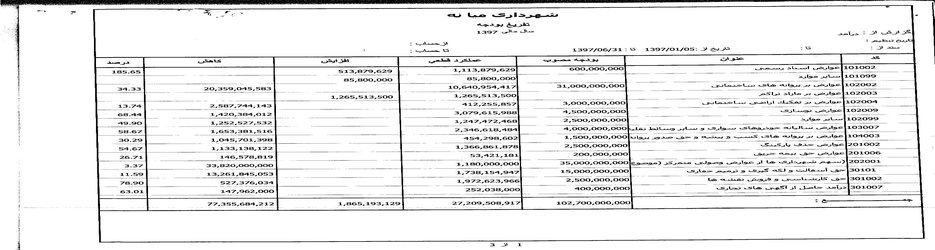 شهرداری میانه
تفریغ بودجه
سال مالی 1397
گزارش از : درآمد
تاریخ تنظیم :
از حساب :
سند از : تا : تاریخ از : 1397/01/05 تا : 1397/06/31 تا حساب :
کد عنوان بودجه مصوب عملکرد قطعی افزایش کاهش درصد
101002 عوارض اسناد رسمی 600,000,000 1,113,879,629 513,879,629 185.65
101099 سایر موارد 85,800,000 85,800,000
102002 عوارض بر پروانه های ساختمانی 31,000,000,000 10,640,954,417 20,359,045,583 34.33
102003 عوارض بر مازاد تراکم 1,265,513,500 1,265,513,500
102004 عوارض بر تفکیک اراضی ساختمانی 3,000,000,000 412,255,857 2,587,744,143 13.74
102009 عوارض نوسازی 4,500,000,000 3,079,615,988 1,420,384,012 68.44
102099 سایر موارد 2,500,000,000 1,247,472,468 1,252,527,532 49.90
103007 عوارض سالیانه خودروهای سواری و سایر وسائط نقلیه 4,000,000,000 2,346,618,484 1,653,381,516 58.67
104003 عوارض بر پروانه های کسب و پیشه و حق صدور پروانه 1,500,000,000 454,298,602 1,045,701,398 30.29
201002 عوارض حذف پارکینگ 2,500,000,000 1,366,861,878 1,133,138,122 54.67
201006 عوارض حق بیمه حریق 200,000,000 53,421,181 146,578,819 26.71
202001 (سهم شهرداری ها از عوارض وصولی متمرکز (موضوع 35,000,000,000 1,180,000,000 33,820,000,000 3.37
30101 حق آسفالت و لکه گیری و ترمیم حفاری 15,000,000,000 1,738,154,947 13,261,845,053 11.59
301002 حق کارشناسی و فروش نقشه ها 2,500,000,000 1,972,623,966 527,376,034 78.90
301007 درآمد حاصل از آگهی های تجاری 400,000,000 252,038,000 147,962,000 63.01
جمع : 102,700,000,000 27,209,508,917 1,865,193,129 77,355,684,212
1 از 3